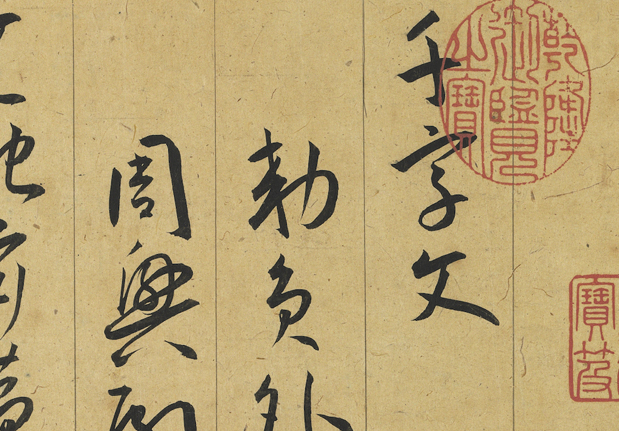 乾隆御覽之寶
寶笈
千字文
勅員外
周興嗣
地